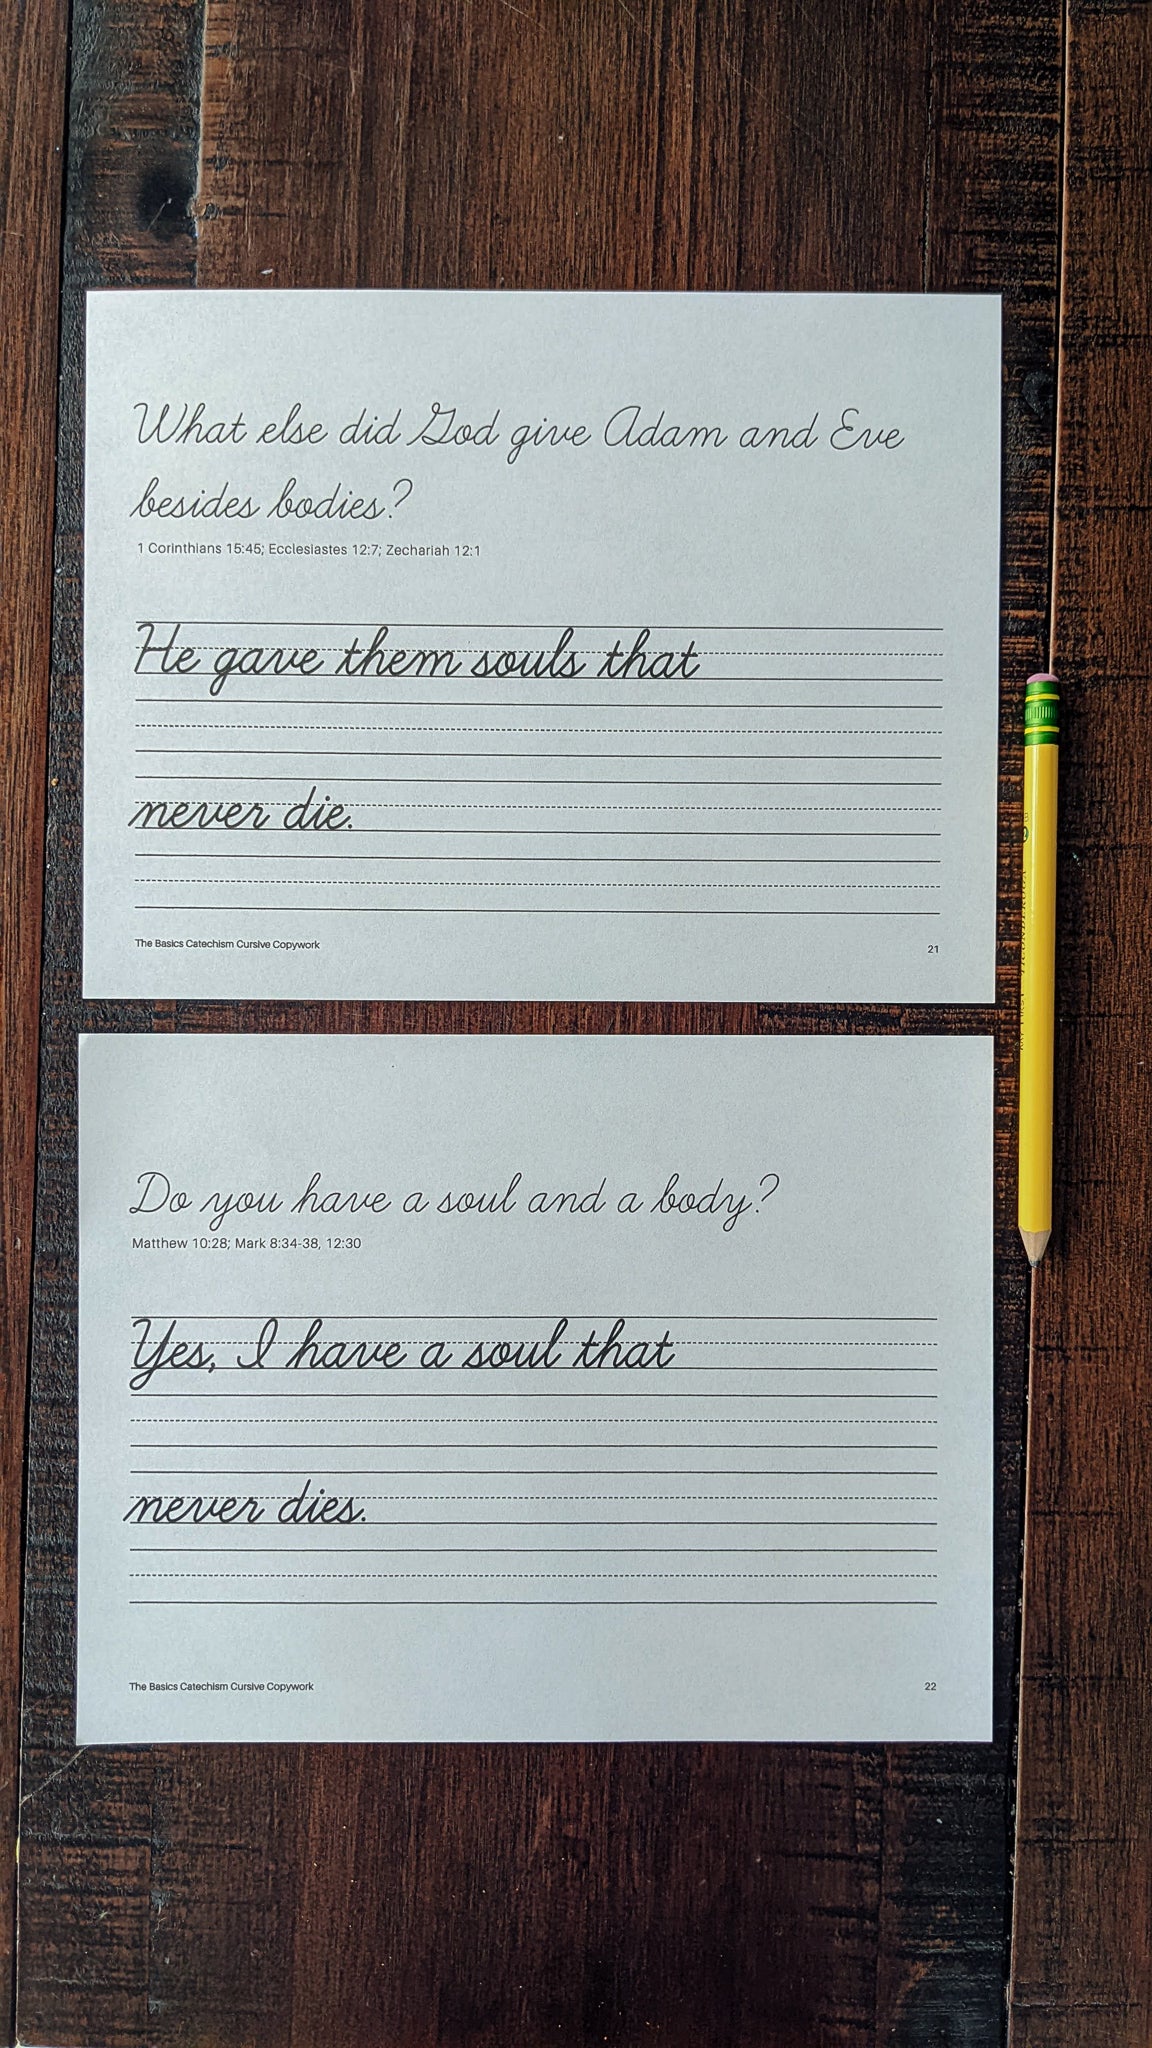 What else did God give Adam and Eve
besides bodies?
1 Corinthians 15:45; Ecclesiastes 12:7; Zechariah 12:1
He gave them souls that
never die.
The Basics Catechism Cursive Copywork
21
Do you have a soul and a body?
Matthew 10:28; Mark 8:34-38, 12:30
Yes, I have a soul that
never dies.
The Basics Catechism Cursive Copywork
22